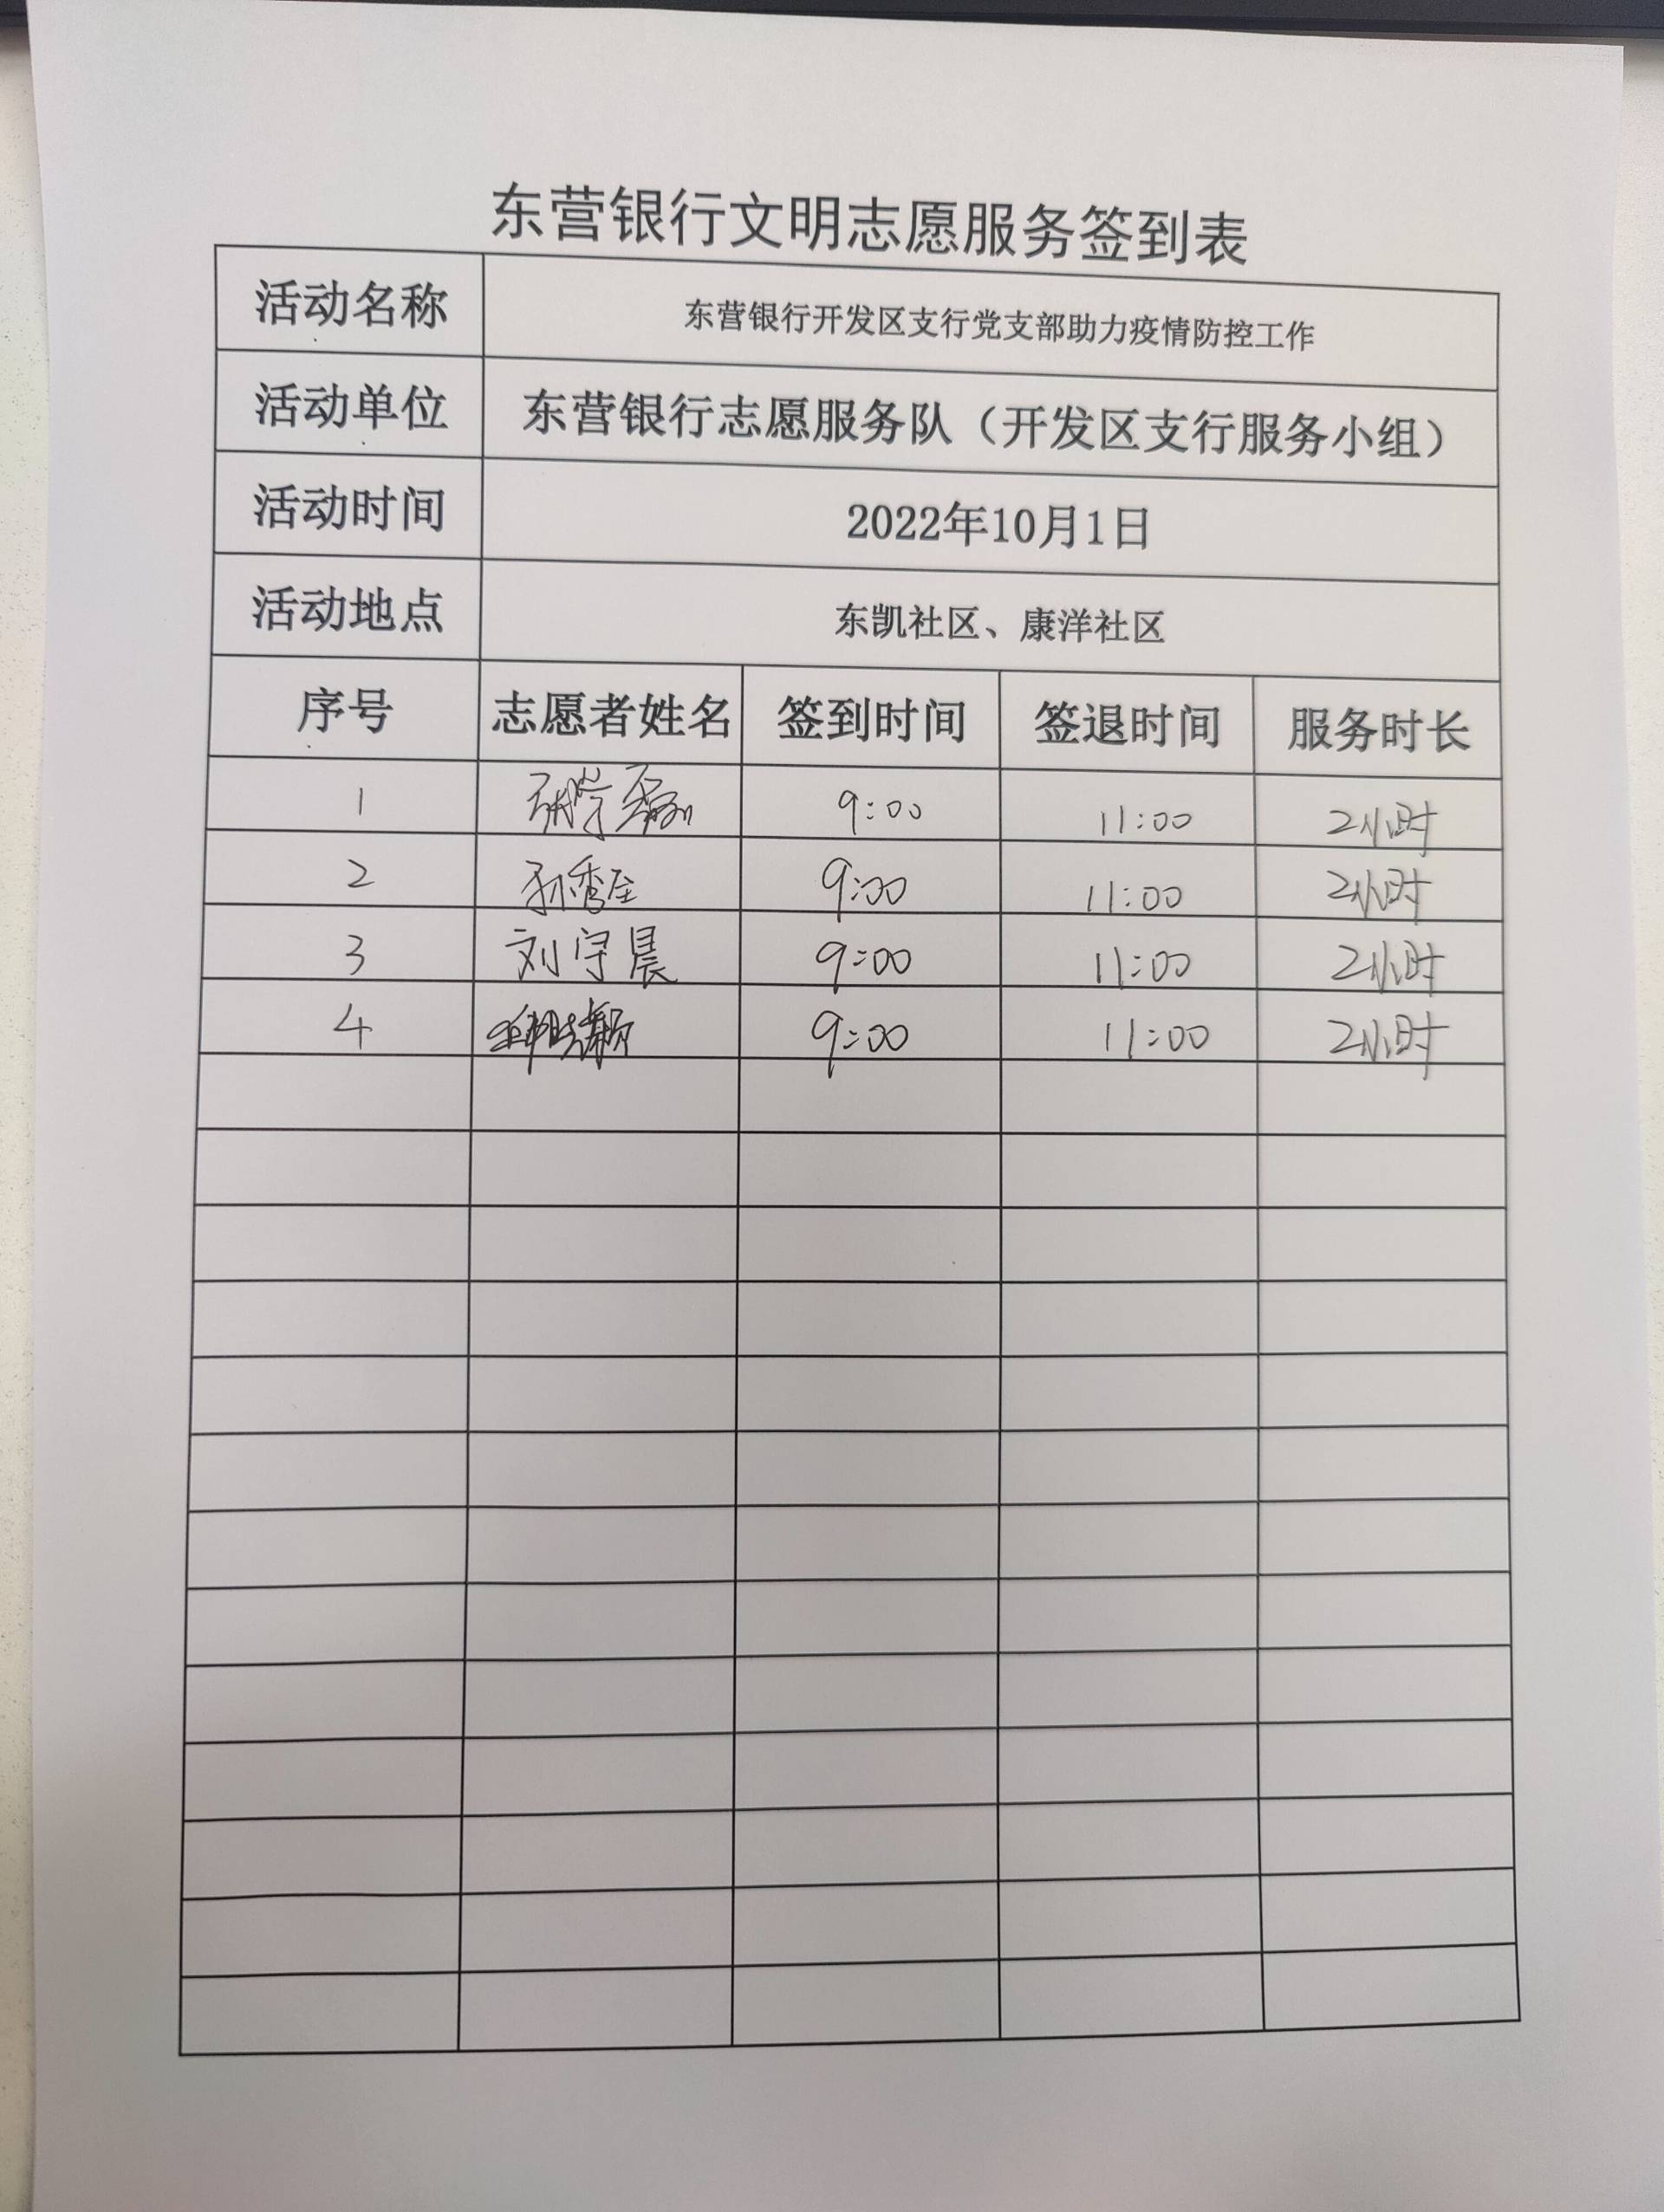 东营银行文明志愿服务签到表
活动名称 东营银行开发区支行党支部助力疫情防控工作
活动单位 东营银行志愿服务队（开发区支行服务小组）
活动时间 2022年10月1日
活动地点 东凯社区、康洋社区
序号 志愿者姓名 签到时间 签退时间 服务时长
1 9:00 11:00 2小时
2 9:00 11:00 2小时
3 刘宇晨 9:00 11:00 2小时
4 9:00 11:00 2小时